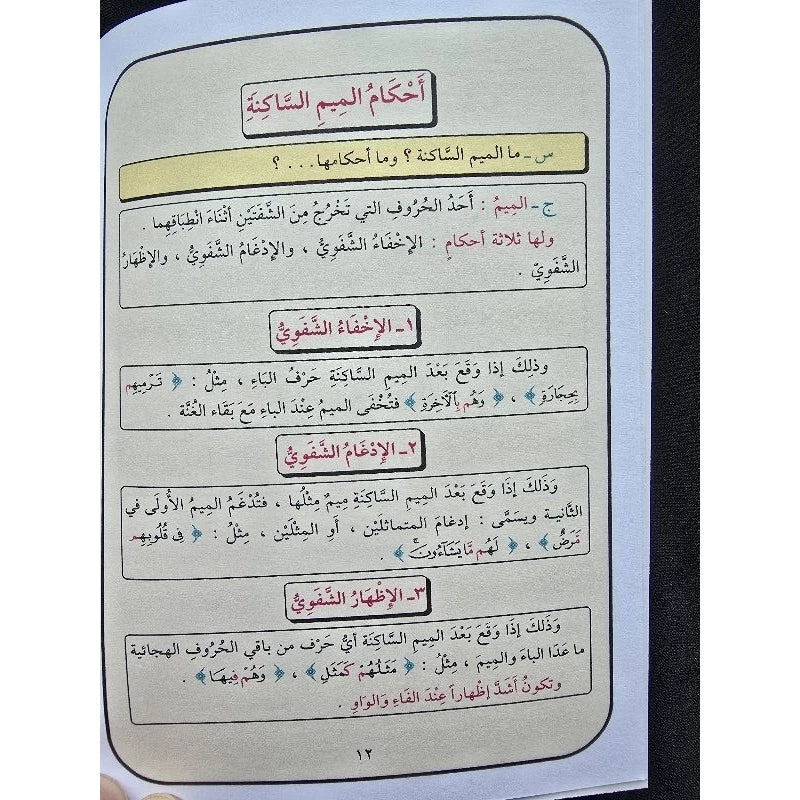 أَحْكَامُ المِيمِ السَّاكِنَةِ
س - ما الميم السَّاكنة ؟ وما أحكامها . . . ؟
ج - المِيمُ : أَحَدُ الحُرُوفِ التي تَخْرُجُ مِنَ الشَّفَتَيْنِ أَثْنَاءَ انْطِبَاقِهِما .
ولها ثلاثة أحكامٍ : الإخْفَاءُ الشَّفَوِيُّ ، والإدْغَامُ الشَّفَوِيُّ ، والإظْهَارُ
الشَّفَوِيّ .
١ - الإخْفَاءُ الشَّفَوِيُّ
وذلكَ إذا وَقَعَ بَعْدَ المِيمِ السَّاكِنَةِ حَرْفُ البَاءِ ، مِثْلُ : ﴿ تَرْمِيهِم
بِحِجَارَةٍ ﴾ ، ﴿ وَهُم بِٱلْآخِرَةِ ﴾ فتُخْفَى الميمُ عِنْدَ الباءِ مَعَ بَقَاء الغُنَّة .
٢ - الإدْغَامُ الشَّفَوِيُّ
وَذَلكَ إذَا وَقَعَ بَعْدَ المِيمِ السَّاكِنَةِ مِيمٌ مِثْلُها ، فتُدْغَمُ المِيمُ الأُولَى في
الثَّانيـة ويسَمَّى : إدغامَ المتماثلَيْن ، أو المِثْلَيْن ، مِثْلُ : ﴿ فِى قُلُوبِهِم
مَّرَضٌ ﴾ ، ﴿ لَهُم مَّا يَشَآءُونَ ۚ ﴾ .
٣ - الإظْهَارُ الشَّفَوِيُّ
وَذَلكَ إذَا وَقَعَ بَعْدَ المِيمِ السَّاكنَة أيُّ حَرْف من باقي الحُرُوفِ الهجائية
ما عَدَا الباءَ والمِيم ، مِثْلُ : ﴿ مَثَلُهُمْ كَمَثَلِ ﴾ ، ﴿ وَهُمْ فِيهَا ﴾ .
وتكونُ أَشَدَّ إظْهاراً عِنْدَ الفَاءِ وَالوَاوِ .
١٢